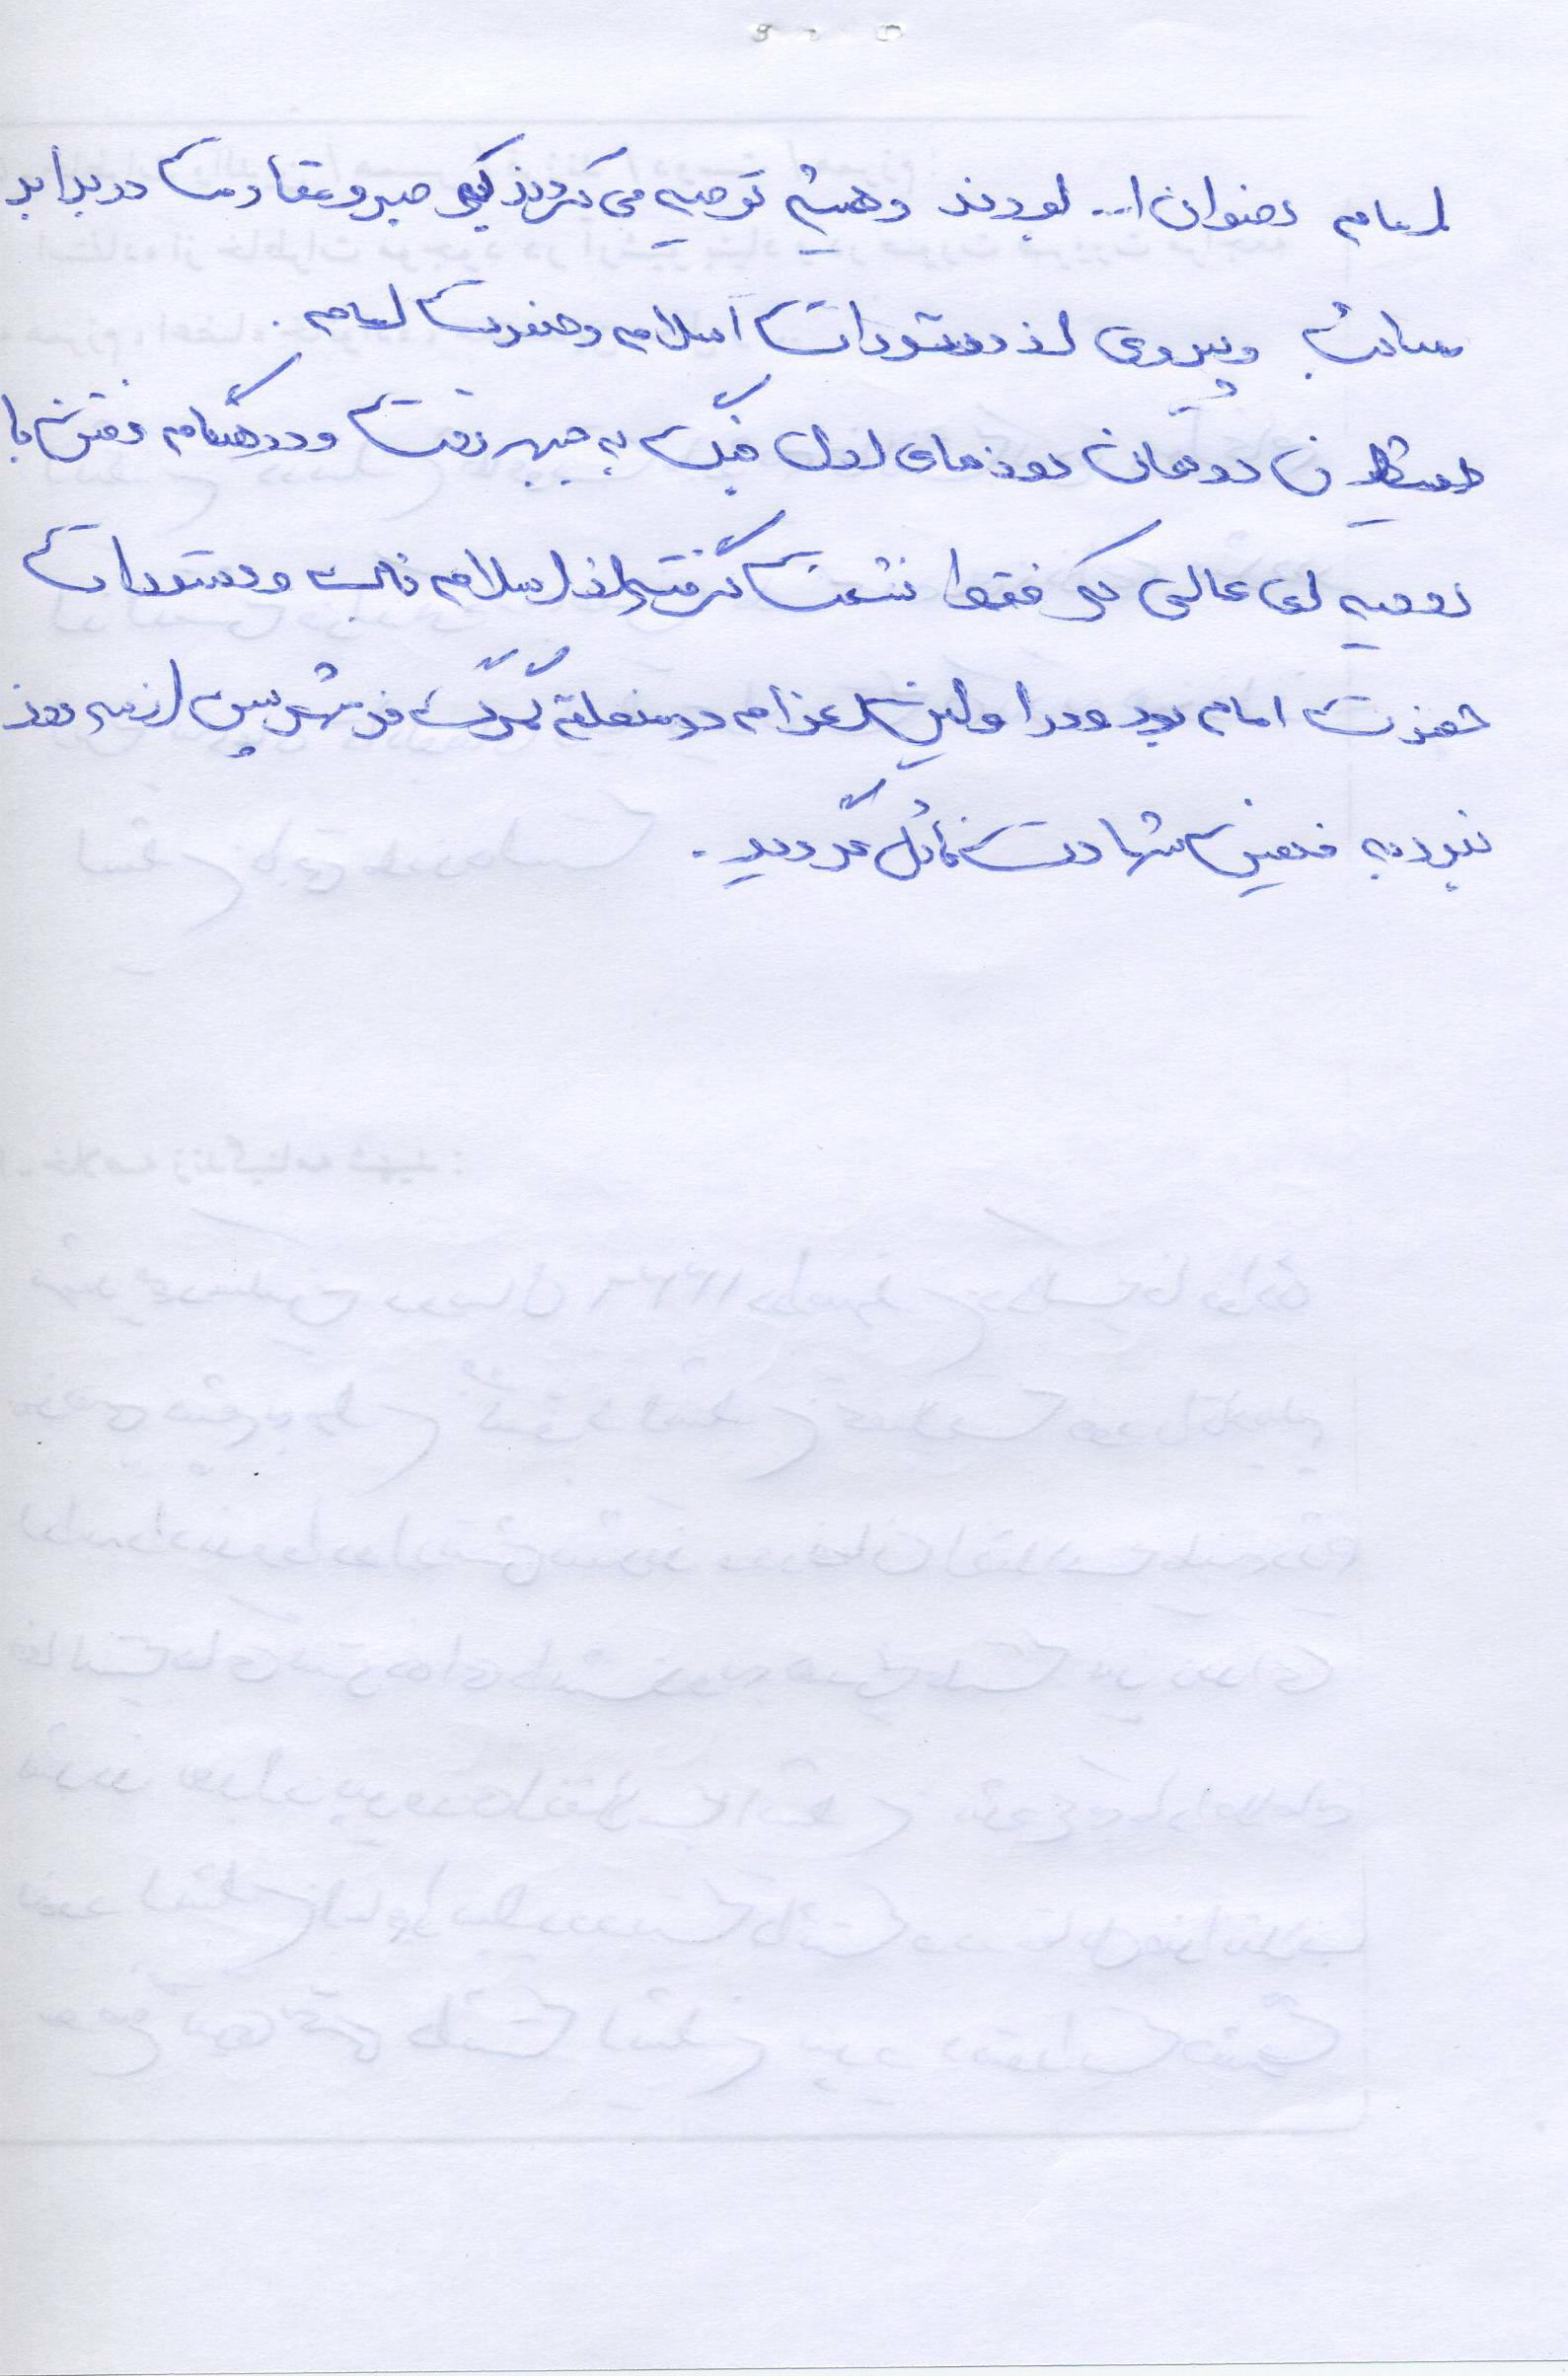 امام رضوان ا... بودند و همیشه توصیه می کردند به صبر و مقاومت در برابر
مصائب و پیروی از دستورات اسلام و حضرت امام .
در همان روزهای اول جنگ به جبهه رفت و در هنگام رفتن با
روحیه ای عالی که فقط نشعت گرفته از اسلام ناب و دستورات
حضرت امام بود و در اولین اعزام در منطقه خرمشهر پس از سه روز
نبرد به فیض شهادت نائل گردید .